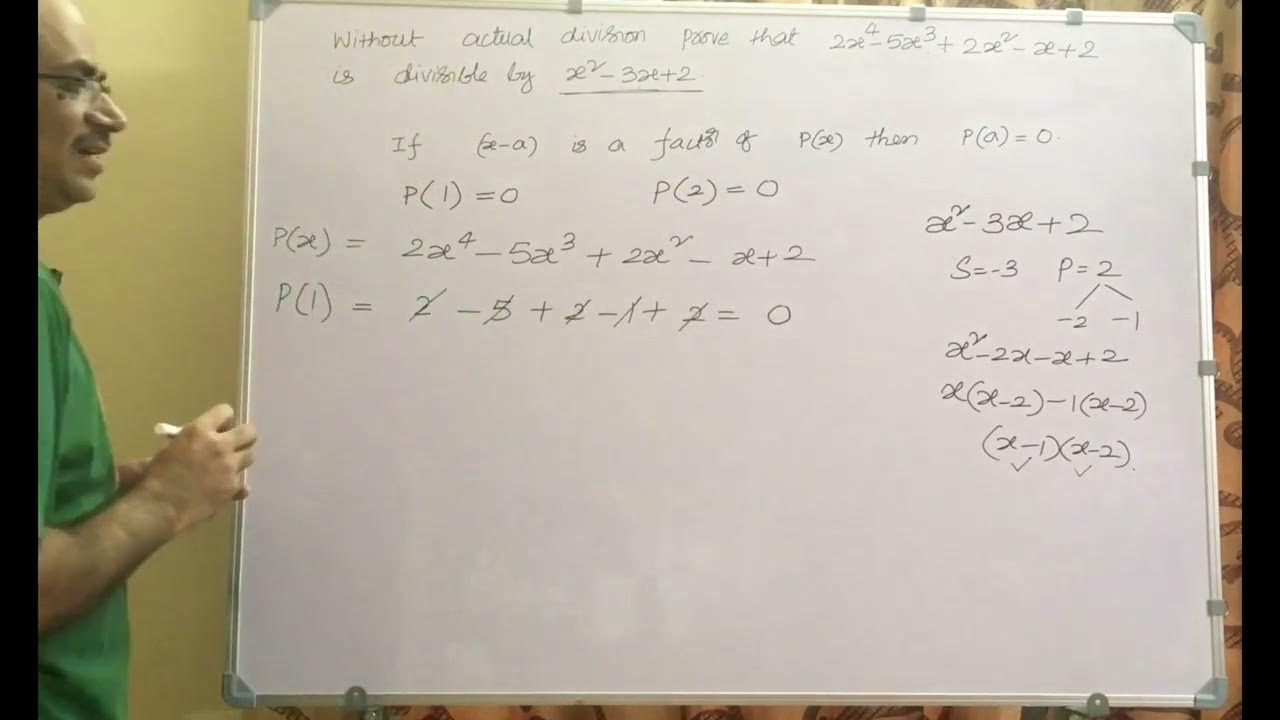 Without actual division prove that 2x⁴-5x³+2x²-x+2
is divisible by x²-3x+2.
If (x-a) is a factor of P(x) then P(a)=0.
P(1)=0 P(2)=0
P(x) = 2x⁴-5x³+2x²-x+2
P(1) = 2-5+2-1+2= 0
x²-3x+2
S=-3 P=2
-2 -1
x²-2x-x+2
x(x-2)-1(x-2)
(x-1)(x-2).